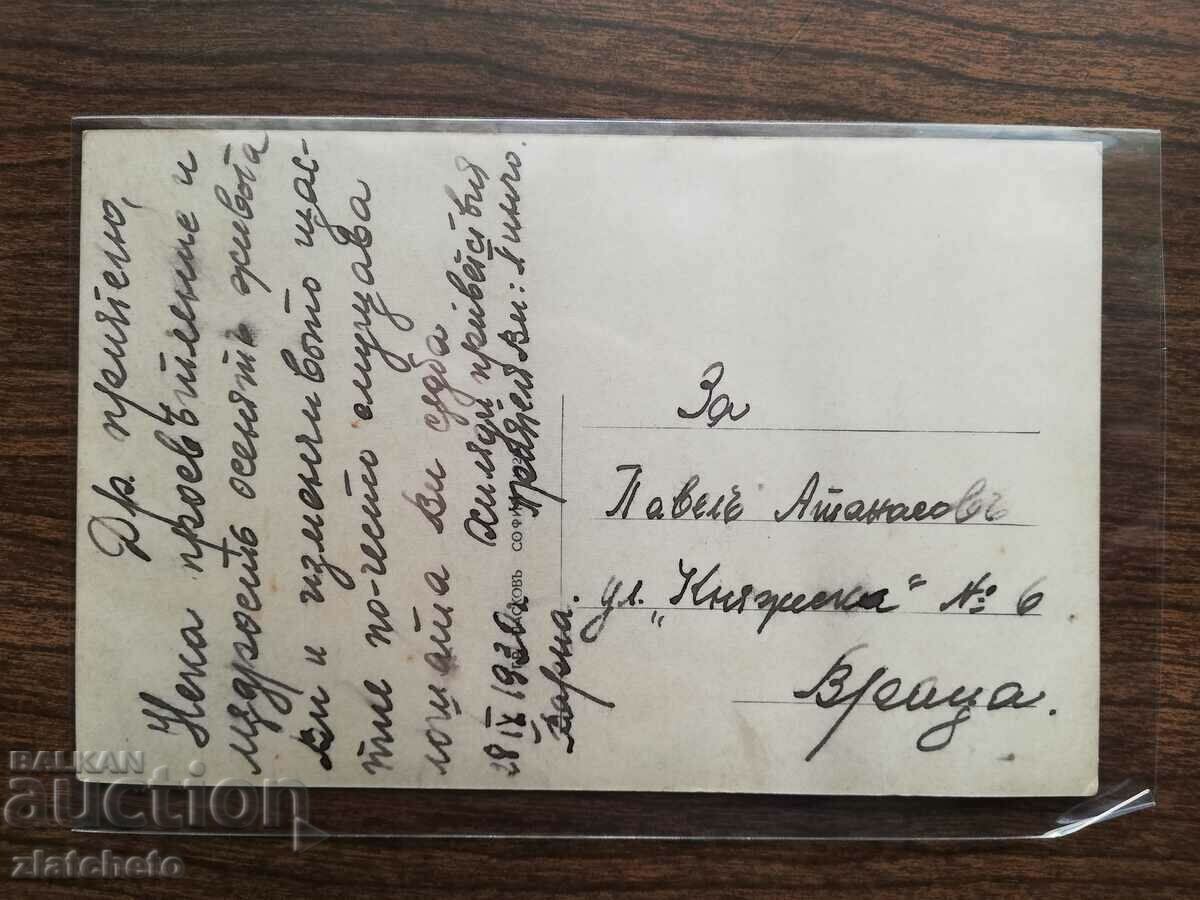 Др. приятелю,
Нека просвѣтление и
мѫдрость осенятъ живота
ви и изменчивото щас-
тие по-често смущава
лошата ви сѫдба
Хиляди приветствия
Приятеля ви: Минчо.
28 IX 1930
Варна.
ГР. ПАСКОВЪ СОФИЯ
За
Павелъ Атанасовъ
ул. „Княжеска" №: 6
Враца.
BALKAN
auction
zlatcheto